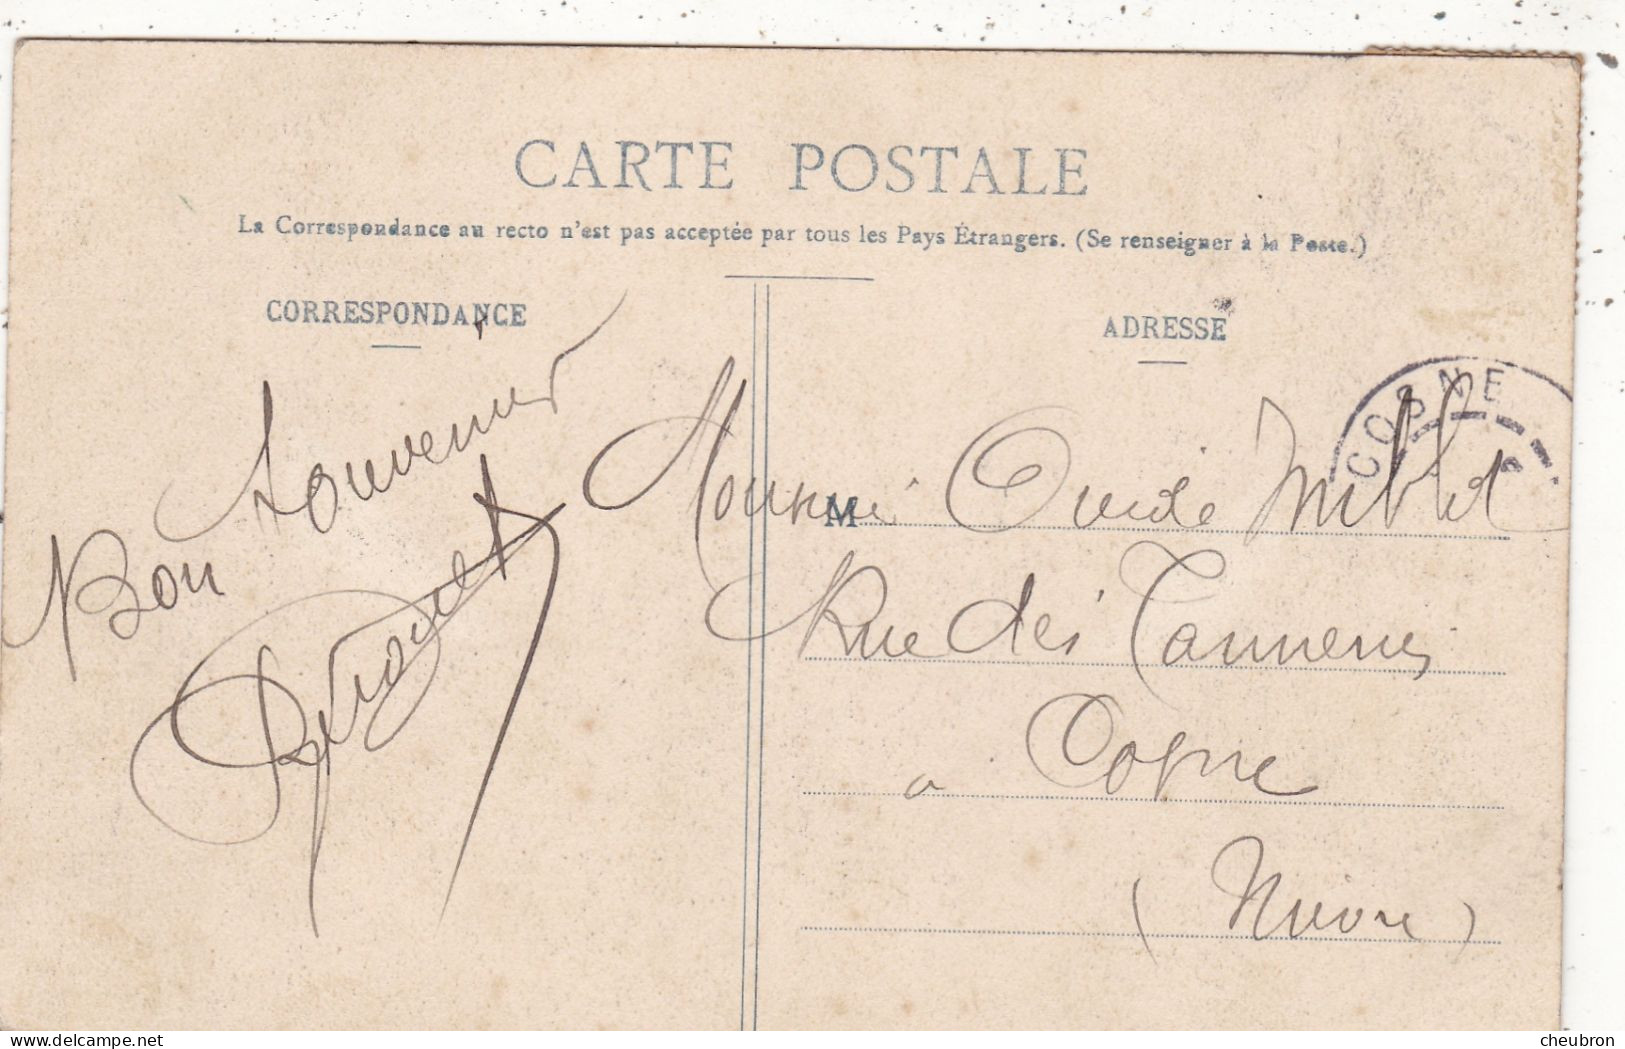 CARTE POSTALE
La Correspondance au recto n'est pas acceptée par tous les Pays Étrangers. (Se renseigner à la Poste.)
CORRESPONDANCE
Bon Souvenir
ADRESSE
COSNE
M
Monsieur Ovide
Rue des Tanneries
a Cosne
(Nièvre)
delcampe.net
cheubron